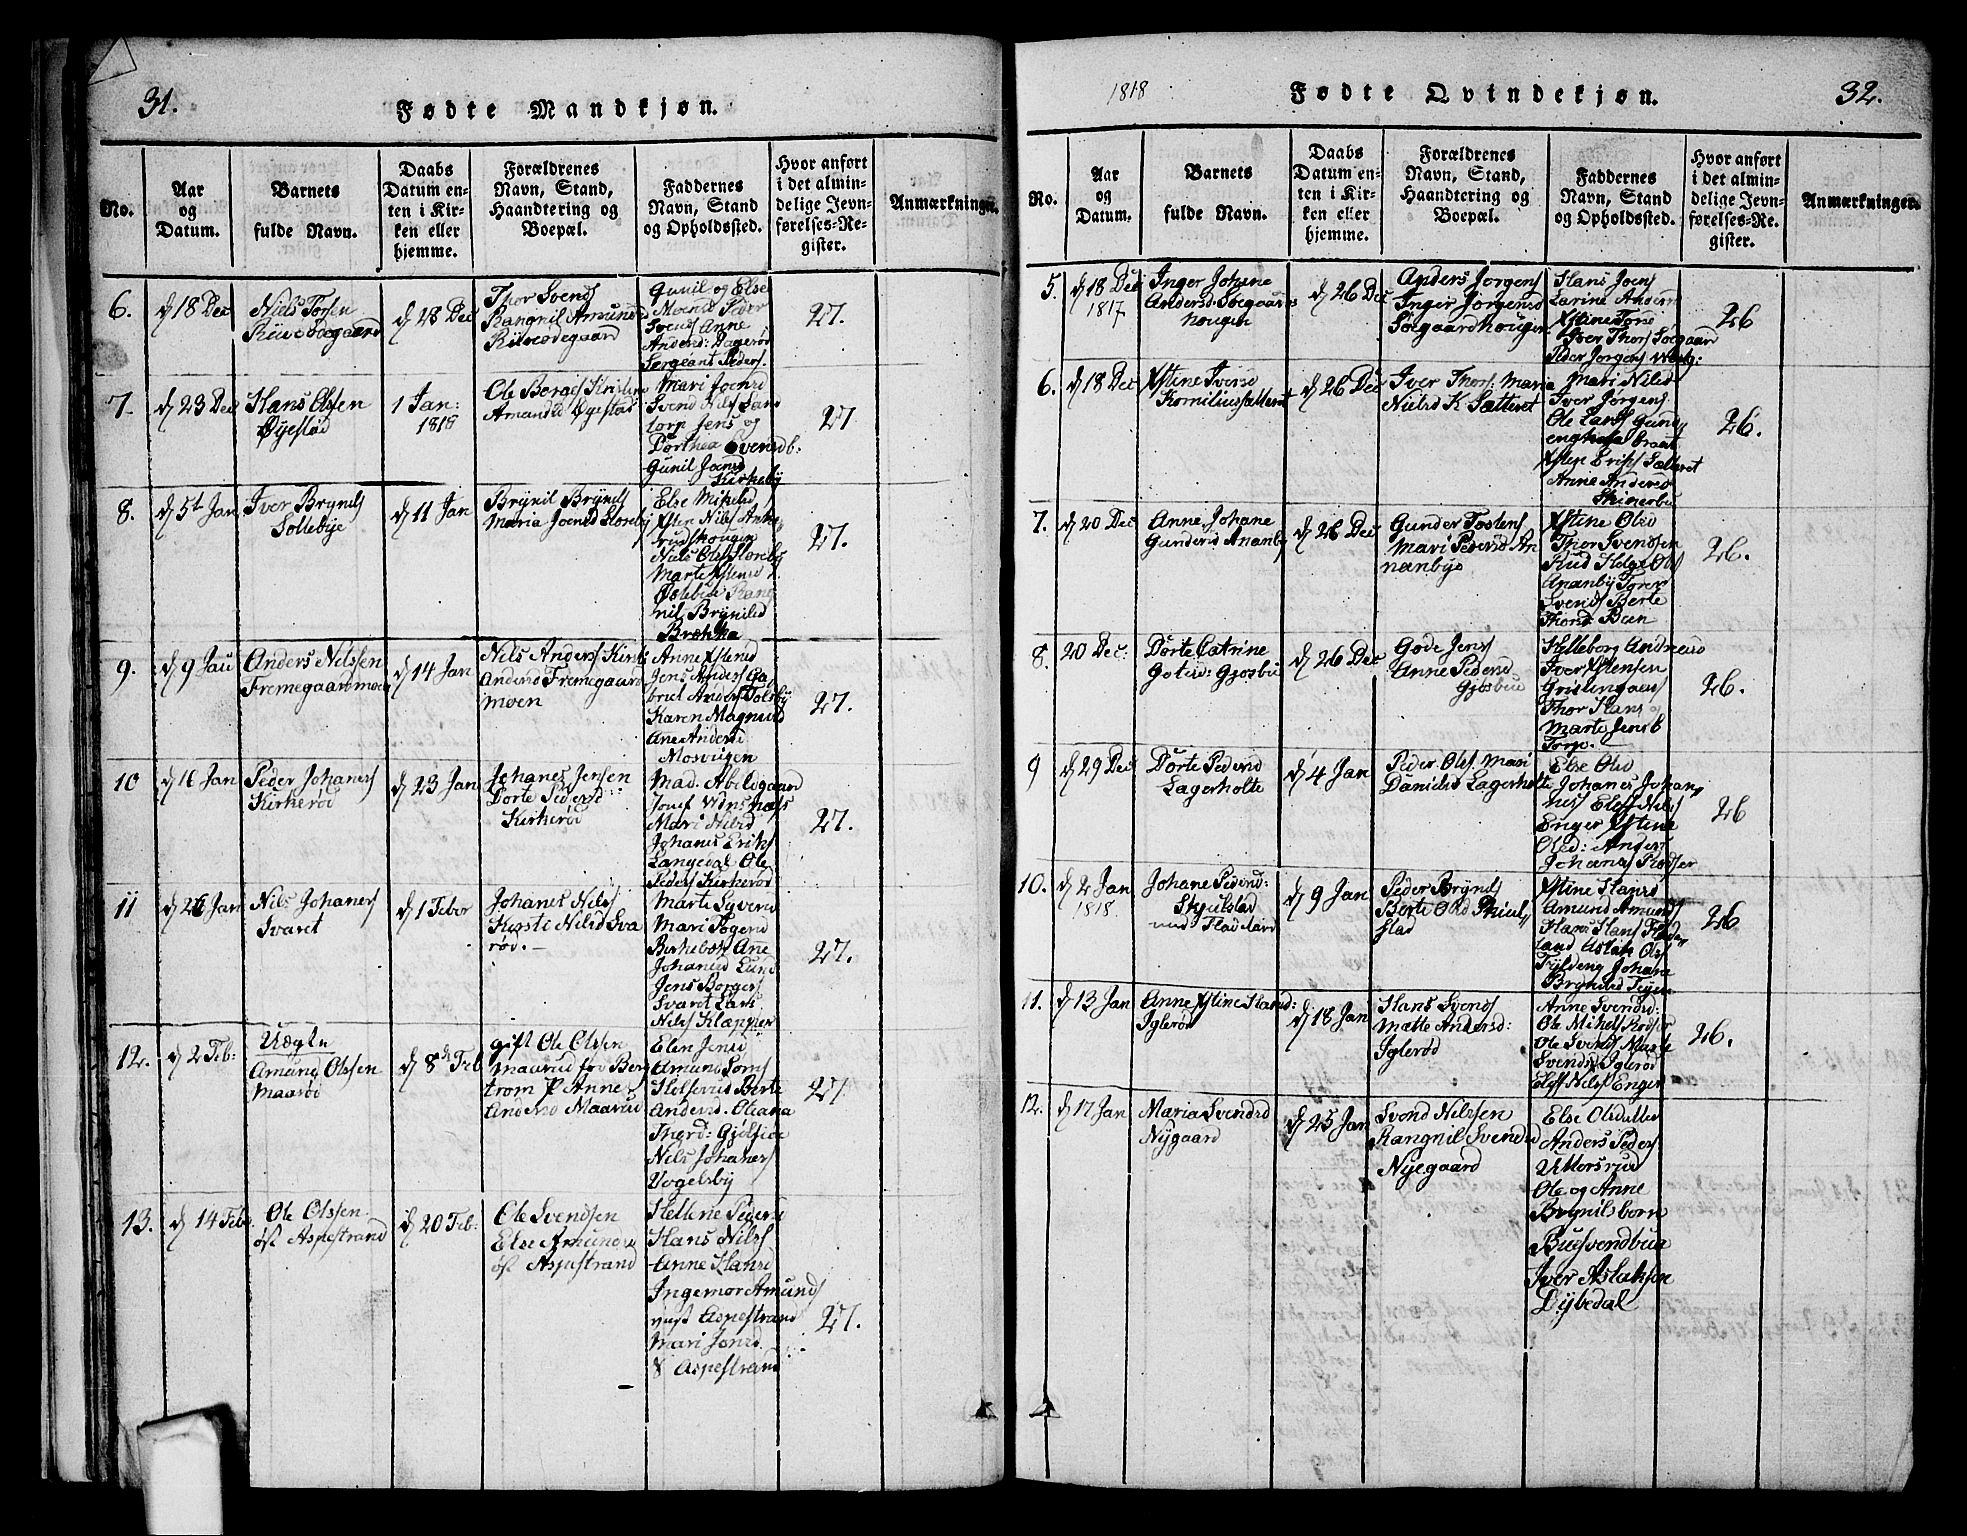 31.
Fødte Mandkjøn.
No.
Aar
og
Datum.
Barnets
fulde Navn.
Daabs
Datum en-
ten i Kir-
ken eller
hjemme.
Forældrenes
Navn, Stand,
Haandtering og
Boepæl.
Faddernes
Navn, Stand
og Opholdssted.
Hvor anført
i det almin-
delige Jevn-
førelses-Re-
gister.
Anmærkninger.
6.
d 18 Dec
Niels Torsen
d 28 Dec
Thor Svends
Rangnil Amunds
Gunil og Else
Svends Anne
Anders: Dagerød
Sergeant Peders
27.
7.
d 23 Dec
Hans Olsen
Øyestød
1 Jan:
1818
Ole Borges Kristine
Amunds Øyestød
Mari Joensd
Svend Nils Lans
torp Jens og
Dorthea Svensdb:
Gunil Joensd
Kirkeby
27
8.
d 5t Jan
Iver Brynils
Sollebye
d 11 Jan
Brynil Brynils
Maria Joensd Storeby
Else Mikelsd
Xsten Nils Anke
rudshougen
Niels Ols Storeby
Marte Xstensd
Østebue Rang
nil Brynilsd
Brækka
27.
9.
d 9 Jan
Anders Nilssen
Fremegaardmoen
d 14 Jan
Nils Anders Kirsti
Andersd Fremegaard
moen
Anne Xstensd
Jens Anders Ga
briel Anders Tolsby
Karen Magnusd
Ane Andersd
Mosvigen
27.
10
d 16 Jan
Peder Johanes
Kirkerød
d 23 Jan
Johanes Jensen
Dorte Pedersd:
Kirkerød
Mad. Abildgaard
Josef Wensnæss
Mari Nilsd
Johanes Eriks
Langedal Ole
Peders Kirkerød
27.
11
d 26 Jan
Nils Johanes
Svaret
d 1 Febr
Johanes Nils
Kirste Nilsd Sva
rød.
Marte Syversd
Mari Togersd
Birkebok Ane
Johanesd Lund
Jens Borges
Svaret Lars
Nils Klæpper
27.
12.
d 2 Feb:
Uægte
Amund Olssen
Maarød
d 8de Feb
gift Ole Olssen
Maarud for Berg
trom P Anne
Andersd Maarud
Elen Jensd
Amund Toms
Holseviis Berte
Andersd. Oleana
Thord: Gjølsiøe
Nils Johanes
Vogelsby
27
13.
d 14 Febr.
Ole Olssen
øst Aspestrand
d 20 Feb:
Ole Svendsen
Else Amunds
øst Aspestrand
Hellene Peders
Hans Nils
Anne Hansd
Ingemor Amunds
vest Aspestrand
Mari Jonsd
S Aspestrand
27.
1818
Fødte Qvindekjøn.
32.
No.
Aar
og
Datum.
Barnets
fulde Navn.
Daabs
Datum en-
ten i Kir-
ken eller
hjemme.
Forældrenes
Navn, Stand,
Haandtering og
Boepæl.
Faddernes
Navn, Stand
og Opholdssted.
Hvor anført
i det almin-
delige Jevn-
førelses-Re-
gister.
Anmærkninger.
5.
d 18 Dec
1817
Inger Johane
Andersd: Soegaards
hougen
d 26 Dec
Anders Jorgens
Inger Jorgensd
Søegaardhougen
Hans Joens
Larine Anders
Xstine Torsd
Iver Thors Søegaard
Peder Jorgens
26
6.
d 18 Dec
Xstine Iversd
Kornilius sætteret
d 26 Dec
Iver Thors: Maria
Nielsd K Sætteret
Mari Nilsd
Iver Jorgens
Ole Lars Gund
Xsten Eriks Sætteret
Anne Andersd
Skinerbu
26.
7.
d 20 Dec
Anne Johane
Gundersd Ananby
d 26 Dec
Gunder Tostens
Mari Pedersd An
nanbye
Xstine Olsd
Thor Svendsen
Rud Helge Ols
Ananby Torer
Svends Berte
Thorsd: Been
26.
8.
20 Dec:
Dorte Catrine
Gotesd: Gjosbu
d 26 Dec
Gode Jens
Anne Pedersd
Gjosbue
Helleborg Andreasd
Iver Xstensen
Thor Hans og
Marte Jens b
Torp.
26.
9
d 29 Dec
Dorte Pedersd
Lagerholte
d 4 Jan
Peder Ols Mari
Danielsd Lagerholte
Else Olsd
Johanes Johan
nes Elef Nils
Enger Xstine
Olsd: Anger
Johanes Rodser
26
10.
d 2 Jan
1818.
Johane Pedersd:
Skjulstad
d 9 Jan
Peder Brynils
Berte Olsd Skiul
stad
Xstine Hansd
Amund Amunds
Hans Hans Flade
land Aslak Ols
Fylderg Johane
Brynilsd
26
11.
d 13 Jan
Anne Xstine Hansd:
Iglerød
d 18 Jan
Hans Svends
Mætte Andersd:
Iglerød
Anne Svendsd:
Ole Mikels Rodser
Ole Svends Marte
Svendsd Iglerød
Elef Nils Enger
26.
12.
d 17 Jan
Maria Svendsd
Nygaard
d 25 Jan
Svend Nilssen
Rangnil Svendsd
Nyegaard
Else Olsdatter
Anders Peders
Uttorsrud
Ole og Anne
Brynils born
Buesvendbua
Iver Aslaksøn
Dybedal